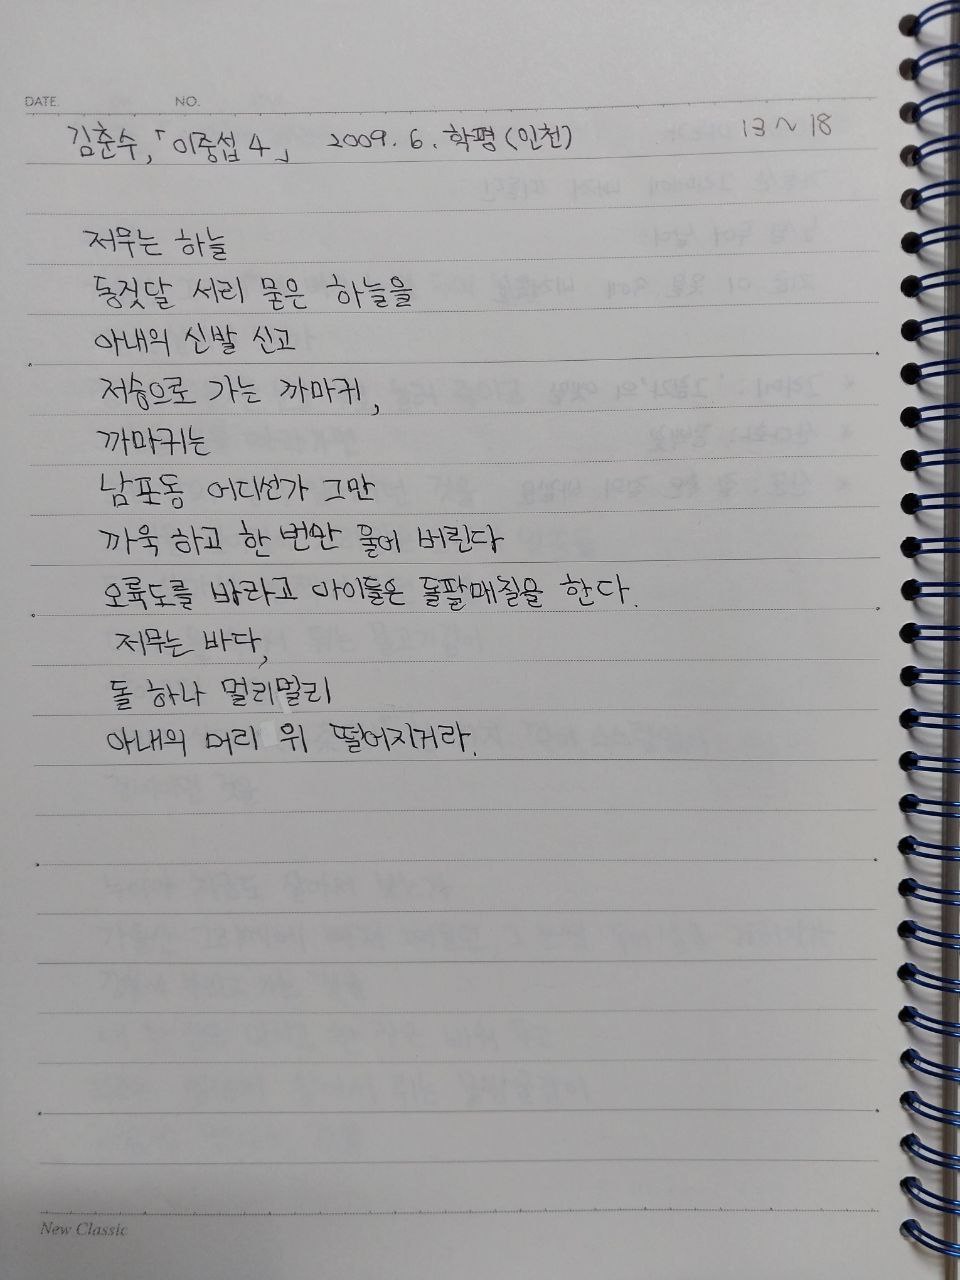 DATE. NO.
김춘수, 「이중섭 4」 2009. 6. 학평(인천) 13 ~ 18
저무는 하늘
동짓달 서리 묻은 하늘을
아내의 신발 신고
저승으로 가는 까마귀,
까마귀는
남포동 어디선가 그만
까욱 하고 한 번만 울어 버린다
오륙도를 바라고 아이들은 돌팔매질을 한다.
저무는 바다,
돌 하나 멀리멀리
아내의 머리 위 떨어지거라.
New Classic